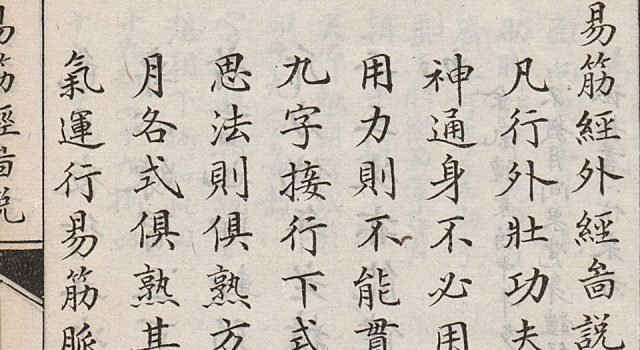 易筋經外經啚説
凡行外壯功夫
神通身不必用
用力則不能貫
九字接行下式
思法則俱熟方
月各式俱熟其
氣運行易筋脈
易筋經啚说